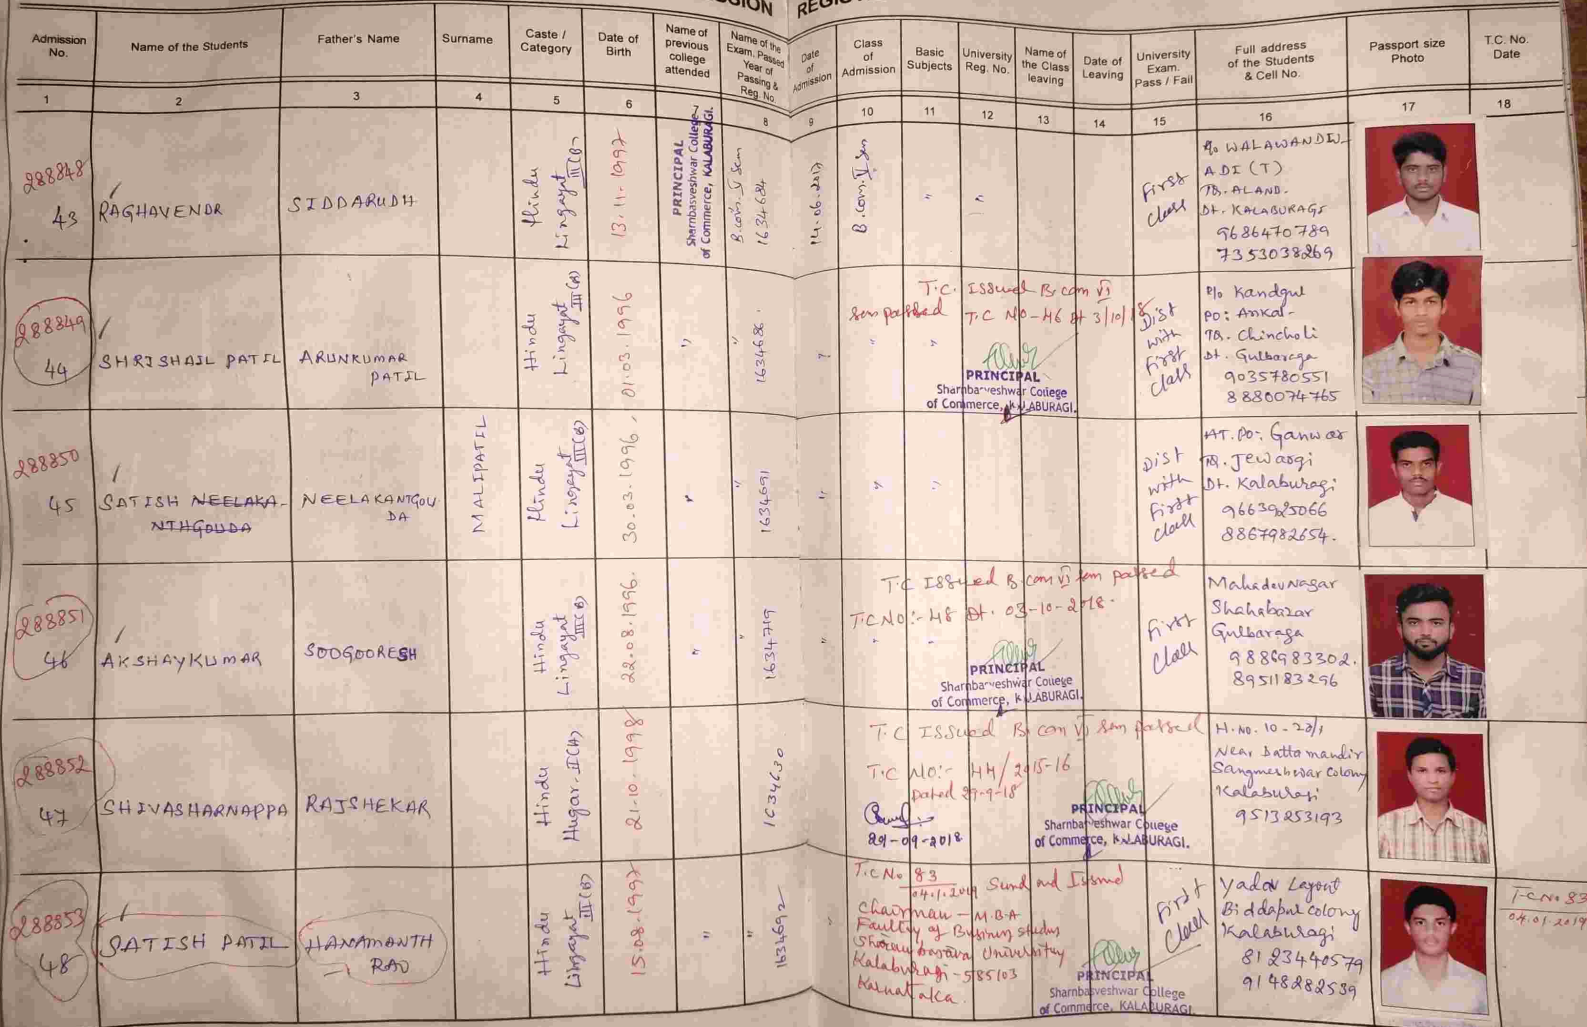 REGIS
Admission No.
Name of the Students
Father's Name
Surname
Caste / Category
Date of Birth
Name of previous college attended
Name of the Exam. Passed Year of Passing & Reg. No.
Date of Admission
Class of Admission
Basic Subjects
University Reg. No.
Name of the Class leaving
Date of Leaving
University Exam. Pass / Fail
Full address of the Students & Cell No.
Passport size Photo
T.C. No. Date
1 2 3 4 5 6 7 8 9 10 11 12 13 14 15 16 17 18
288848
43
RAGHAVENDR
SIDDARUDH
Hindu
Lingayat III(B)
13.11.1997
PRINCIPAL
Sharnbasveshwar College
of Commerce, KALABURAGI.
B.com. V Sem
1634684
14.06.2017
B.com. V Sem
First
Class
WALAWANDW-
ADI (T)
TQ. ALAND.
Dt. KALABURAGI
9686470789
7353038269
288849
44
SHRISHAIL PATIL
ARUNKUMAR
PATIL
Hindu
Lingayat
01.03.1996
1634686.
T.C. Issued B.com VI
Sem passed T.C NO-46 dt 3/10/18
PRINCIPAL
Sharnbasveshwar College
of Commerce, KALABURAGI.
Dist
with
First
Class
Kandgul
PO: Ankal-
TQ. Chincholi
Dt. Gulbaraga
9035780551
8880074765
288850
45
SATISH NEELAKA-
NTHGOUDA
NEELAKANTGOU
DA
MALIPATIL
Hindu
Lingayat III(B)
30.03.1996.
1634691
Dist
with
First
Class
AT.PO:. Ganwar
TQ. Jewargi
Dt. Kalaburagi
9663925066
8867982654.
288851
46
AKSHAYKUMAR
SOOGOORESH
Hindu
Lingayat III(B)
22.08.1996.
1634719
T.C Issued B.com VI Sem passed
T.C NO:- 48 Dt. 03-10-2018.
PRINCIPAL
Sharnbasveshwar College
of Commerce, KALABURAGI.
First
Class
Mahadev Nagar
Shahabazar
Gulbaraga
9886983302.
8951183296
288852
47
SHIVASHARNAPPA
RAJSHEKAR
Hindu
Hugar. II(A)
21-10-1998
1634630
T.C Issued B.com VI Sem passed
T.C NO:- 44/2015-16
Dated 29-9-18
29-09-2018
PRINCIPAL
Sharnbasveshwar College
of Commerce, KALABURAGI.
H.NO. 10-
Near Dattamandir
Sangmeshwar Colony
Kalaburagi
9513253193
288853
48
SATISH PATIL
HANAMANTH
RAO
Hindu
Lingayat III(B)
15.08.1997
1634692
T.C No 83
04.1.2019 and Issued
Chairman - M.B.A
Faculty of Business studies
Sharnbasava University
Kalaburagi-585103
Karnataka.
PRINCIPAL
Sharnbasveshwar College
of Commerce, KALABURAGI.
First
Class
Yadav Layout
Biddapur colony
Kalaburagi
8123440579
9148282539
T.C No 83
04.01.2019